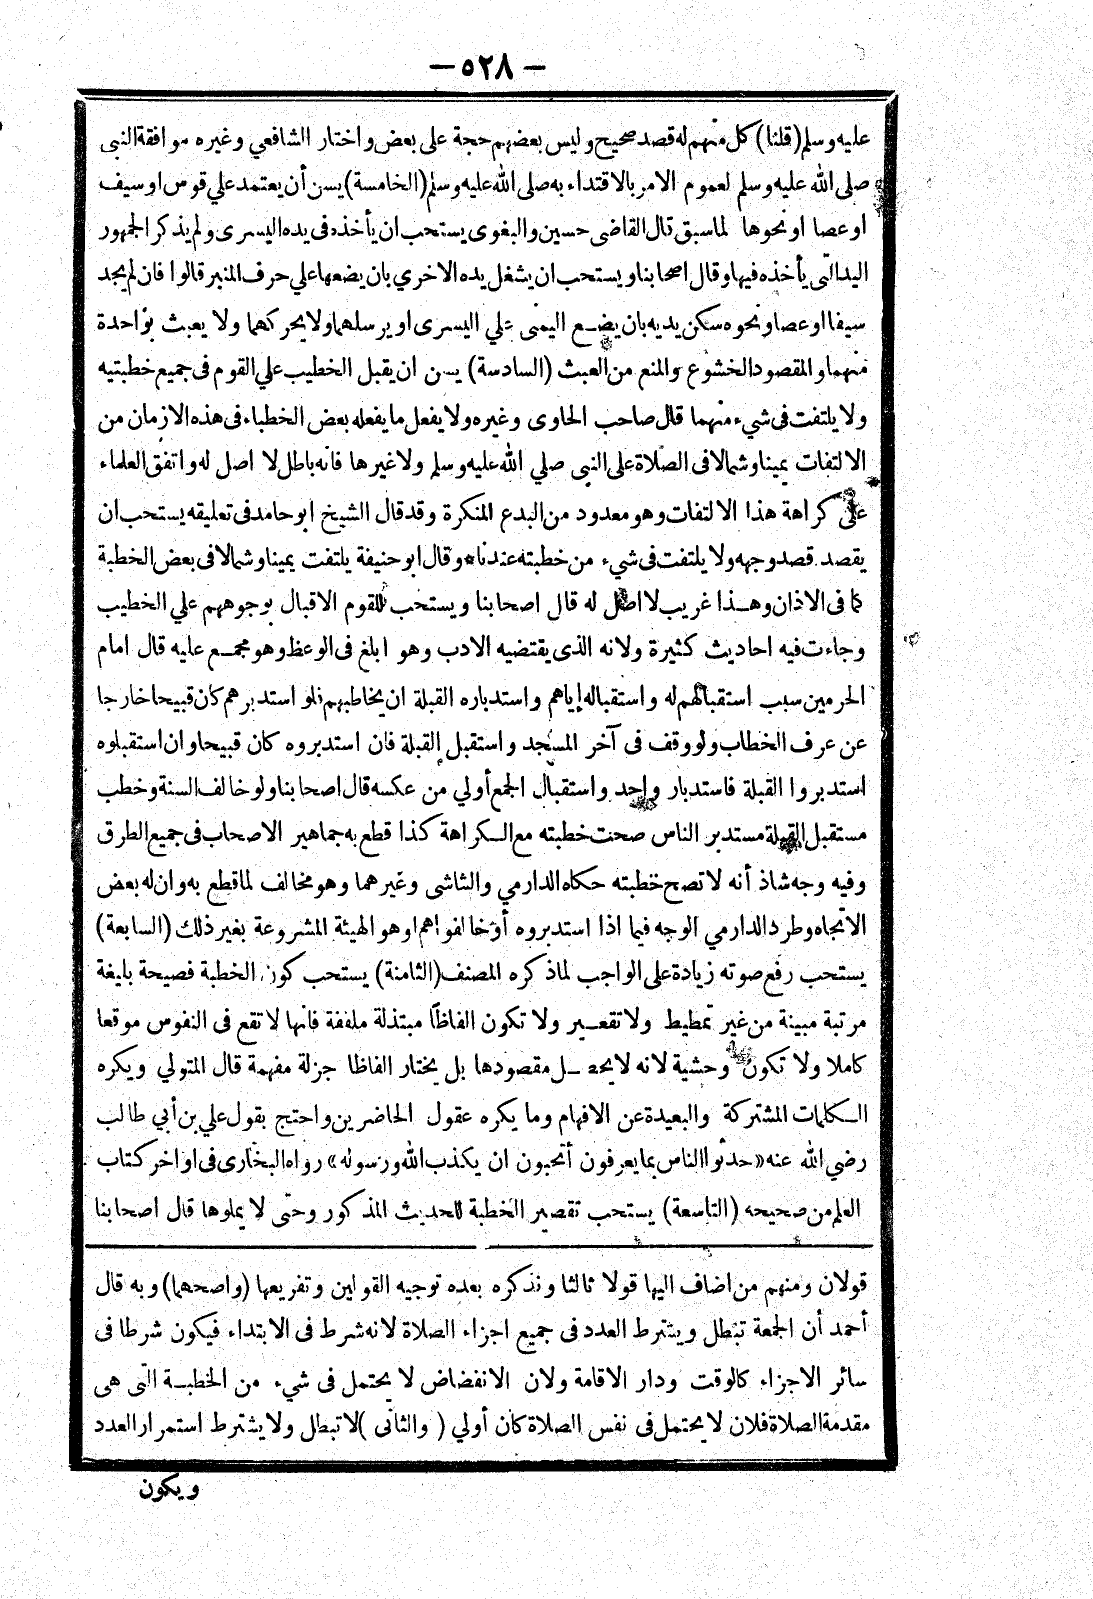 — ٥٢٨ —
عليه وسلم (قلنا) كل منهم له قصد صحيح وليس بعضهم حجة على بعض واختار الشافعي وغيره موافقة النبى
صلى الله عليه وسلم لعموم الامر بالاقتداء به صلى الله عليه وسلم (الخامسة) يسن أن يعتمد علي قوس اوسيف
اوعصا اونحوها لماسبق قال القاضى حسين والبغوى يستحب ان يأخذه فى يده اليسرى ولم يذكر الجمهور
اليد التى يأخذه فيها وقال اصحابنا ويستحب ان يشغل يده الاخري بان يضعها علي حرف المنبر قالوا فان لم يجد
سيفا اوعصا ونحوه سكن يديه بان يضع اليمنى علي اليسرى او يرسلهما ولا يحركهما ولا يعبث بواحدة
منهما والمقصود الخشوع والمنع من العبث (السادسة) يسن ان يقبل الخطيب علي القوم فى جميع خطبتيه
ولا يلتفت فى شيء منهما قال صاحب الحاوى وغيره ولا يفعل ما يفعله بعض الخطباء فى هذه الازمان من
الالتفات يمينا وشمالا فى الصلاة على النبى صلي الله عليه وسلم ولا غيرها فانه باطل لا اصل له واتفق العلماء
على كراهة هذا الالتفات وهو معدود من البدع المنكرة وقد قال الشيخ ابو حامد فى تعليقه يستحب ان
يقصد قصد وجهه ولا يلتفت فى شيء من خطبته عندنا* وقال ابو حنيفة يلتفت يمينا وشمالا فى بعض الخطبة
كما فى الاذان وهذا غريب لا اصل له قال اصحابنا ويستحب للقوم الاقبال بوجوههم علي الخطيب
وجاءت فيه احاديث كثيرة ولانه الذى يقتضيه الادب وهو ابلغ فى الوعظ وهو مجمع عليه قال امام
الحرمين سبب استقبالهم له واستقباله إياهم واستدباره القبلة ان يخاطبهم فلو استدبرهم كان قبيحا خارجا
عن عرف الخطاب ولو وقف فى آخر المسجد واستقبل القبلة فان استدبروه كان قبيحا وان استقبلوه
استدبروا القبلة فاستدبار واحد واستقبال الجمع أولي من عكسه قال اصحابنا ولو خالف السنة وخطب
مستقبل القبلة مستدبر الناس صحت خطبته مع الكراهة كذا قطع به جماهير الاصحاب فى جميع الطرق
وفيه وجه شاذ أنه لا تصح خطبته حكاه الدارمي والشاشى وغيرهما وهو مخالف لما قطع به وان له بعض
الاتجاه وطرد الدارمي الوجه فيما اذا استدبروه أو خالفوا هم او هو الهيئة المشروعة بغير ذلك (السابعة)
يستحب رفع صوته زيادة على الواجب لما ذكره المصنف (الثامنة) يستحب كون الخطبة فصيحة بليغة
مرتبة مبينة من غير تمطيط ولا تقعير ولا تكون الفاظا مبتذلة ملففة فانها لا تقع فى النفوس موقعا
كاملا ولا تكون وحشية لانه لا يحصل مقصودها بل يختار الفاظا جزلة مفهمة قال المتولي ويكره
الكلمات المشتركة والبعيدة عن الافهام وما يكره عقول الحاضرين واحتج بقول علي بن أبي طالب
رضي الله عنه «حدثوا الناس بما يعرفون أتحبون ان يكذب الله ورسوله» رواه البخارى فى اواخر كتاب
العلم من صحيحه (التاسعة) يستحب تقصير الخطبة للحديث المذكور وحتى لا يملوها قال اصحابنا
قولان ومنهم من اضاف اليها قولا ثالثا ونذكره بعده توجيه القولين وتفريعها (واصحهما) وبه قال
أحمد أن الجمعة تبطل ويشترط العدد فى جميع اجزاء الصلاة لانه شرط فى الابتداء فيكون شرطا فى
سائر الاجزاء كالوقت ودار الاقامة ولان الانفضاض لا يحتمل فى شيء من الخطبة التى هى
مقدمة الصلاة فلان لا يحتمل فى نفس الصلاة كان أولي (والثانى) لا تبطل ولا يشترط استمرار العدد
ويكون